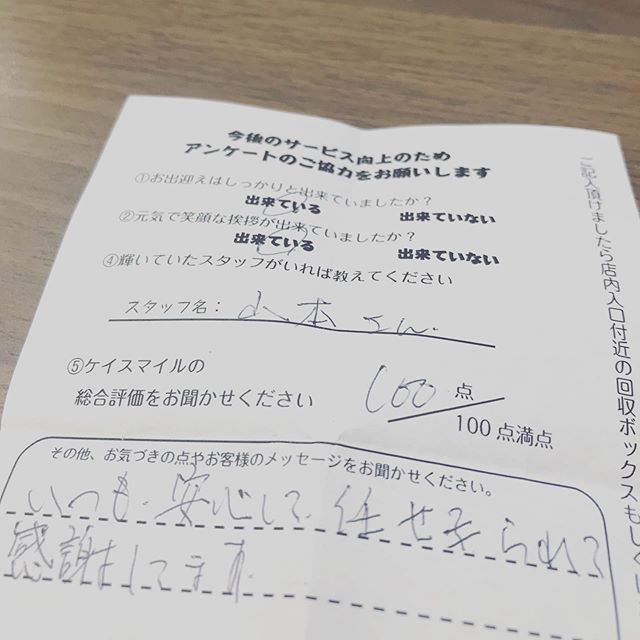 今後のサービス向上のため
アンケートのご協力をお願いします
①お出迎えはしっかりと出来ていましたか？
出来ている 出来ていない
②元気で笑顔な挨拶が出来ていましたか？
出来ている 出来ていない
④輝いていたスタッフがいれば教えてください
スタッフ名： 山本さん
⑤ケイスマイルの
総合評価をお聞かせください
100 点
100点満点
その他、お気づきの点やお客様のメッセージをお聞かせください。
いつも安心して任せられる
感謝してます
ご記入頂けましたら店内入口付近の回収ボックスもしくは